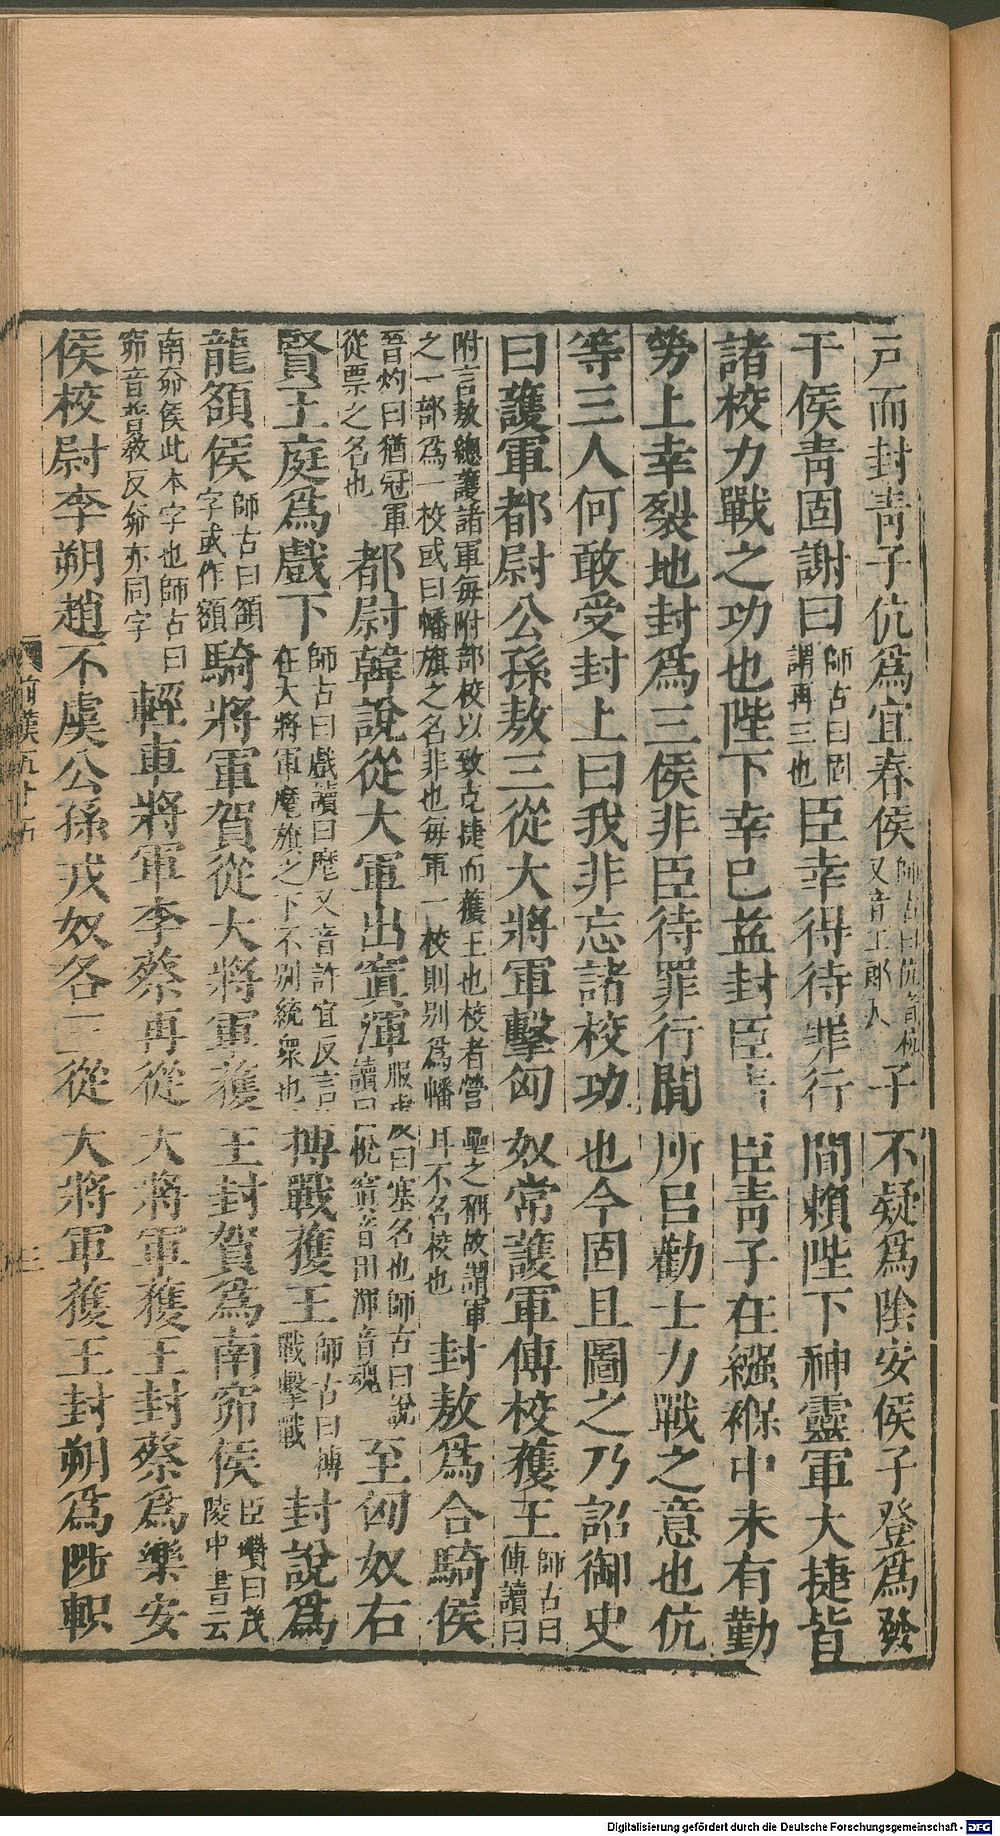 戸而封靑子伉爲宜春侯師古曰伉音杭又音工郎人子不疑爲陰安侯子登爲發
干侯靑固謝曰師古曰固謂再三也臣幸得待罪行間賴陛下神靈軍大捷皆
諸校力戰之功也陛下幸已益封臣靑臣靑子在繈褓中未有勤
勞上幸裂地封爲三侯非臣待罪行間所㠯勸士力戰之意也伉
等三人何敢受封上曰我非忘諸校功也今固且圖之乃詔御史
曰護軍都尉公孫敖三從大將軍擊匈奴常護軍傅校獲王師古曰傅讀曰
附言敖總護諸軍每附部校以致克捷而獲王也校者營壘之稱故謂軍之一部爲一校或曰幡旗之名非也每軍一校則别爲幡耳不名校也封敖爲合騎侯
晉灼曰猶冠軍從票之名也都尉韓說從大軍出窴渾服虔曰塞名也師古曰說讀曰悅窴音田渾音魂至匈奴右
賢王庭爲戲下師古曰戲讀曰麾又音許宜反言在大將軍麾旗之下不别統衆也搏戰獲王師古曰搏戰擊戰封說爲
龍頟侯師古曰頟字或作額騎將軍賀從大將軍獲王封賀爲南窌侯臣瓚曰茂陵中書云
南奅侯此本字也師古曰窌音普敎反奅亦同字輕車將軍李蔡再從大將軍獲王封蔡爲樂安
侯校尉李朔趙不虞公孫戎奴各三從大將軍獲王封朔爲陟軹
前漢五十五
三
Digitalisierung gefördert durch die Deutsche Forschungsgemeinschaft - DFG